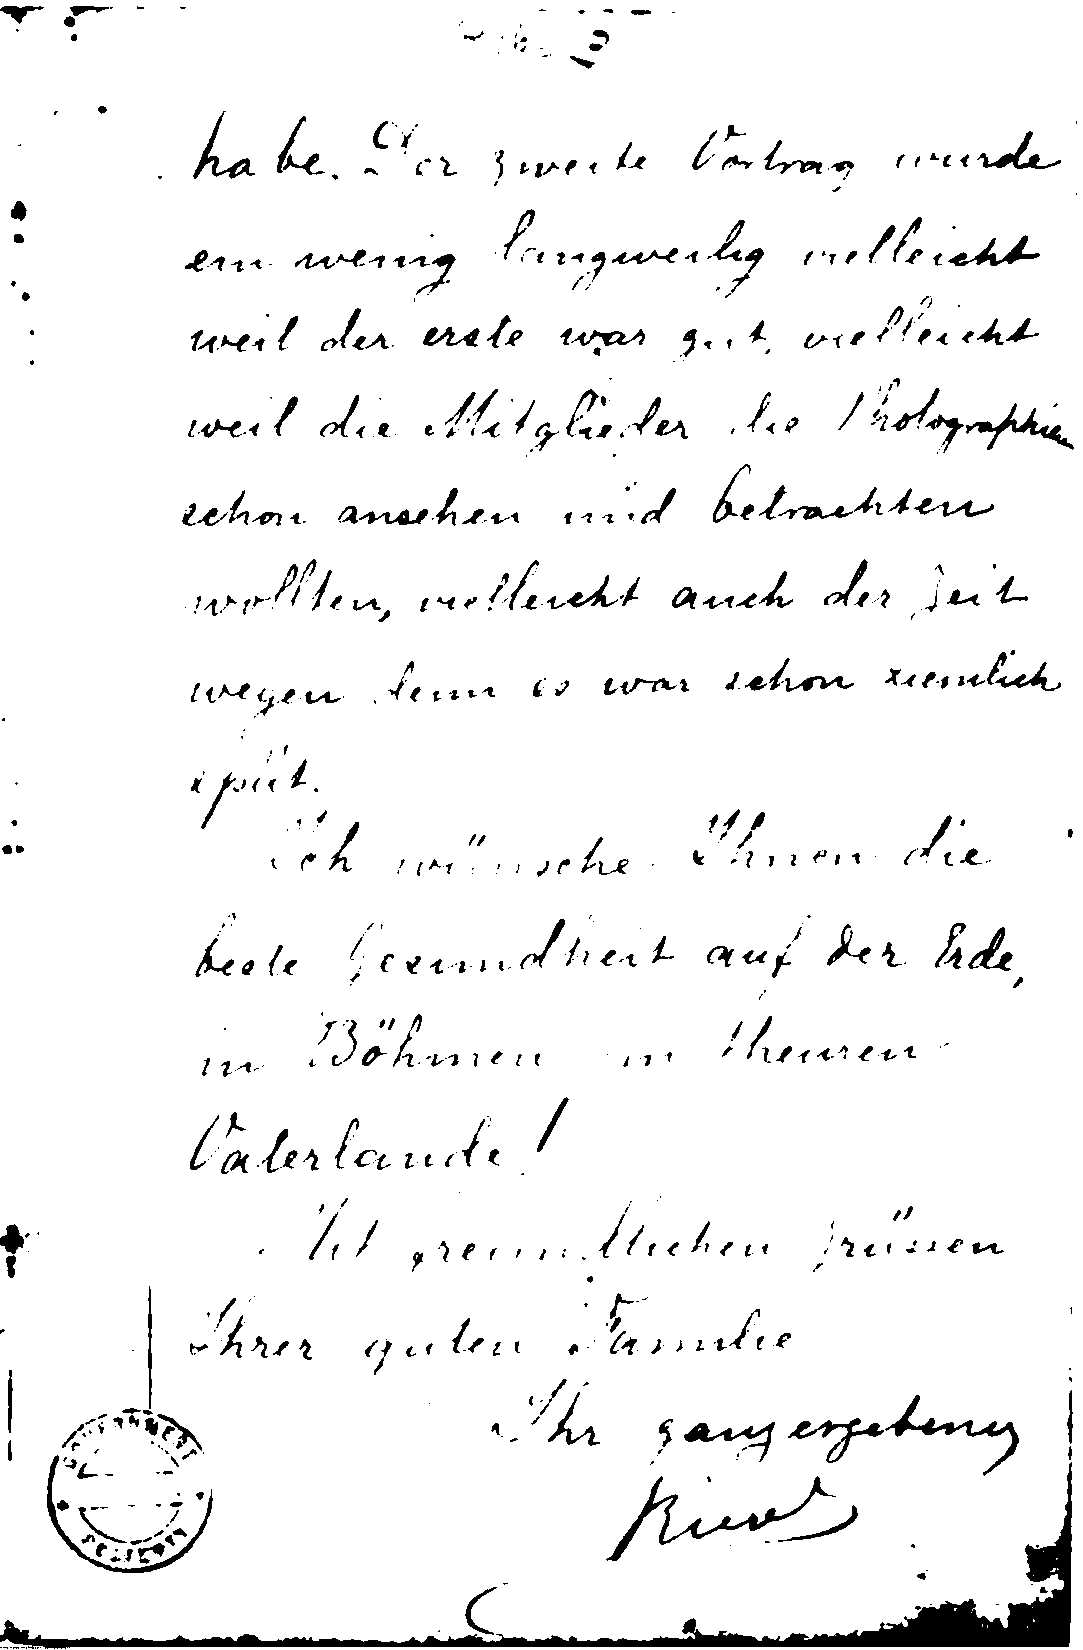 habe. Der zweite Vortrag wurde
ein wenig langweilig vielleicht
weil der erste war gut, vielleicht
weil die Mitglieder die Photographien
schon ansehen und betrachten
wollten, vielleicht auch der Zeit
wegen denn es war schon ziemlich
spät.
Ich wünsche Ihnen die
beste Gesundheit auf der Erde,
in Böhmen in theuren
Vaterlande!
Mit freundlichen Grüssen
Ihrer guten Familie
Ihr ganz ergebener
GOUVERNMENT